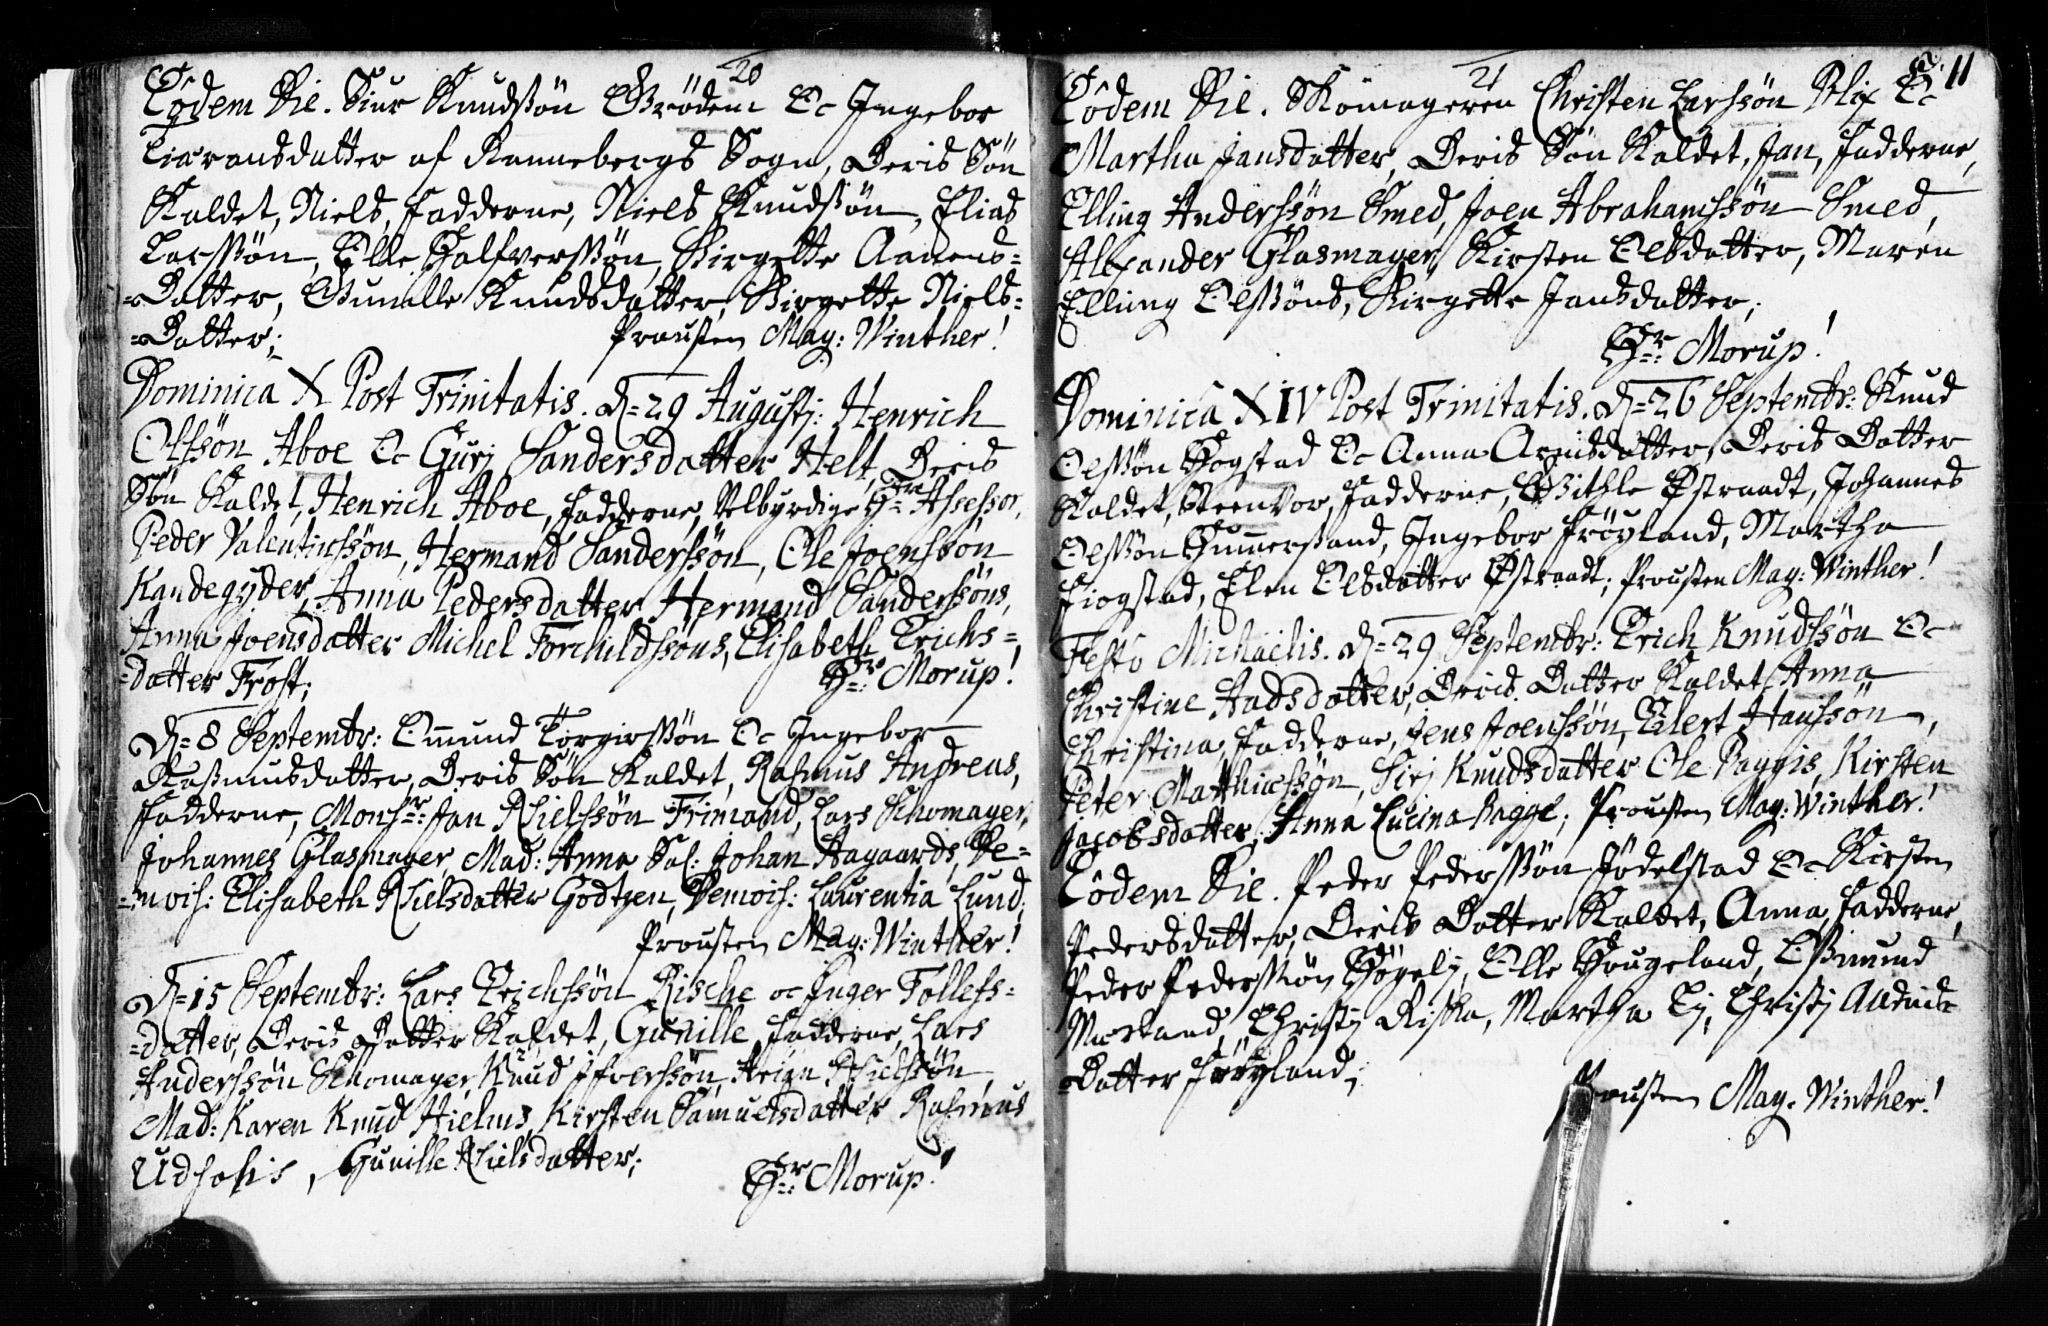 20
Eodem Die. Siur Knudssøn Grødem Oc Ingebor
Tiaransdatter af Rannebergs Sogn, Deris Søn
Kaldet, Niels, Fadderne, Niels Knudssøn, Elias
Larssøn, Olle Halfverssøn, Birgette Aanens=
=Datter, Gunille Knudsdatter, Birgette Niels=
=Datter; Prousten Mag: Winther!
Dominica X Post Trinitatis. D=29 Augustj: Henrich
Olssøn Aboe Oc Gurj Sandersdatter Helt, Deris
Søn Kaldet, Henrich Aboe, Fadderne, Velbyrdige Hr Assessor,
Peder Valentinssøn, Hermand Sanderssøn, Ole Joenssøn
Kandegyder, Anna Pedersdatter Hermand Sanderssøns,
Anna Joensdatter Michel Torchildssøns, Elisabeth Erichs=
=datter Frost; Hr: Morup!
D=8 Septembr: Omund Torgirssøn Oc Ingebor
Rasmusdatter, Deris Søn Kaldet, Rasmus Andreas,
Fadderne, Monsr: Jan Nielssøn Frimand, Lars Schomager,
Johannes Glasmager, Mad: Anna Sal: Johan Aagaards, De=
=mois: Elisabeth Nielsdatter Godtzen, Demois: Laurentia Lund;
Prousten Mag: Winther!
D=15 Septembr: Lars Erichssøn Rische oc Inger Tollefs=
=datter, Deris Datter Kaldet, Gunille, Fadderne, Lars
Anderssøn Schomager, Knud Ifverssøn, Nielssøn,
Mad: Karen Knud Hielms, Kirsten Samuelsdatter Rasmus
Udsohis, Gunille Nielsdatter;
Hr: Morup!
21
11
Eodem Die. Skomageren Christen Larssøn Blix Oc
Martha Jansdatter, Deris Søn Kaldet, Jan, Fadderne,
Elling Anderssøn Smed, Joen Abrahamssøn Smed,
Alexander Glasmager, Kirsten Olsdatter, Maren
Elling Olssøns, Birgette Jansdatter;
Hr: Morup!
Dominica XIV Post Trinitatis. D=26 Septembr: Knud
Olssøn Hogstad Oc Anna Arnisdatter, Deris Datter
Kaldet, Steenvor, Fadderne, Githle Østraadt, Johannes
Olssøn Hummersand, Ingebor Frøyland, Martha
Fiogstad, Elen Olsdatter Østraadt; Prousten Mag: Winther!
Festo Michaelis. D=29 Septembr: Erich Knudssøn Oc
Christine Aadsdatter, Deris Datter Kaldet, Anna
Christina, Fadderne, Jens Joenssøn, Eilert Hanssøn,
Peter Matthiessøn, Sirj Knudsdatter Ole Paggis, Kirsten
Jacobsdatter, Anna Lucina Bagge; Prousten Mag: Winther!
Eodem Die. Peder Pederssøn Jødelstad Oc Kirsten
Pedersdatter, Deris Datter Kaldet, Anna, Fadderne,
Peder Pederssøn Høyelj, Olle Hougeland, Osmund
Marland, Christj Riska, Martha Lj, Christj
=Datter Frøyland;
Prousten Mag: Winther!